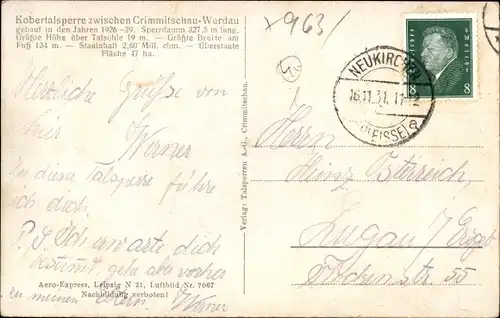 Kobertalsperre zwischen Crimmitschau-Werdau
gebaut in den Jahren 1926-29. Sperrdamm 327,5 m lang.
Größte Höhe über Talsohle 19 m. — Größte Breite am
Fuß 134 m. — Stauinhalt 2,60 Mill. cbm. — Überstaute
Fläche 47 ha.
x963/
5
Herzliche Grüße von
hier Werner
Zu dieser Talsperre führe
ich dich.
P. S. Ich erwarte dich
bestimmt, gehe aber vorher
zu meinen Eltern. Werner
Aero-Express, Leipzig N 21, Luftbild Nr. 7067
Nachbildung verboten!
Verlag: Talsperren A.-G. Crimmitschau.
NEUKIRCHEN
16.11.31. 11-12
(PLEISSE) a
Deutsches Reich
8 8
Herrn
Heinz Österreich,
Lugau / Erzgb
Stockenstr. 55